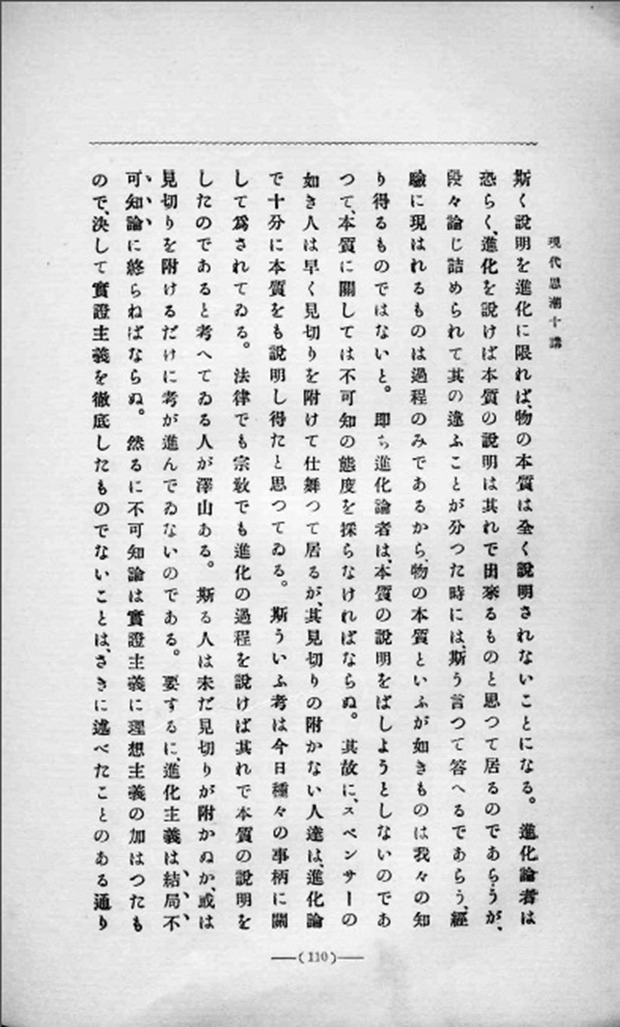 現代思潮十講
斯く說明を進化に限れば、物の本質は全く說明されないことになる。進化論者は
恐らく、進化を說けば本質の說明は其れで出來るものと思つて居るのであらうが、
段々論じ詰められて其の違ふことが分つた時には、斯う言つて答へるであらう、經
驗に現はれるものは過程のみであるから、物の本質といふが如きものは我々の知
り得るものではないと。卽ち進化論者は、本質の說明をばしようとしないのであ
つて、本質に關しては不可知の態度を採らなければならぬ。其故に、スペンサーの
如き人は早く見切りを附けて仕舞つて居るが、其見切りの附かない人達は、進化論
で十分に本質をも說明し得たと思つてゐる。斯ういふ考は今日種々の事柄に關
して爲されてゐる。法律でも宗敎でも進化の過程を說けば其れで本質の說明を
したのであると考へてゐる人が澤山ある。斯る人は未だ見切りが附かぬか、或は
見切りを附けるだけに考が進んでゐないのである。要するに、進化主義は結局不
可知論に終らねばならぬ。然るに不可知論は實證主義に理想主義の加はつたも
ので、決して實證主義を徹底したものでないことは、さきに述べたことのある通り
(110)